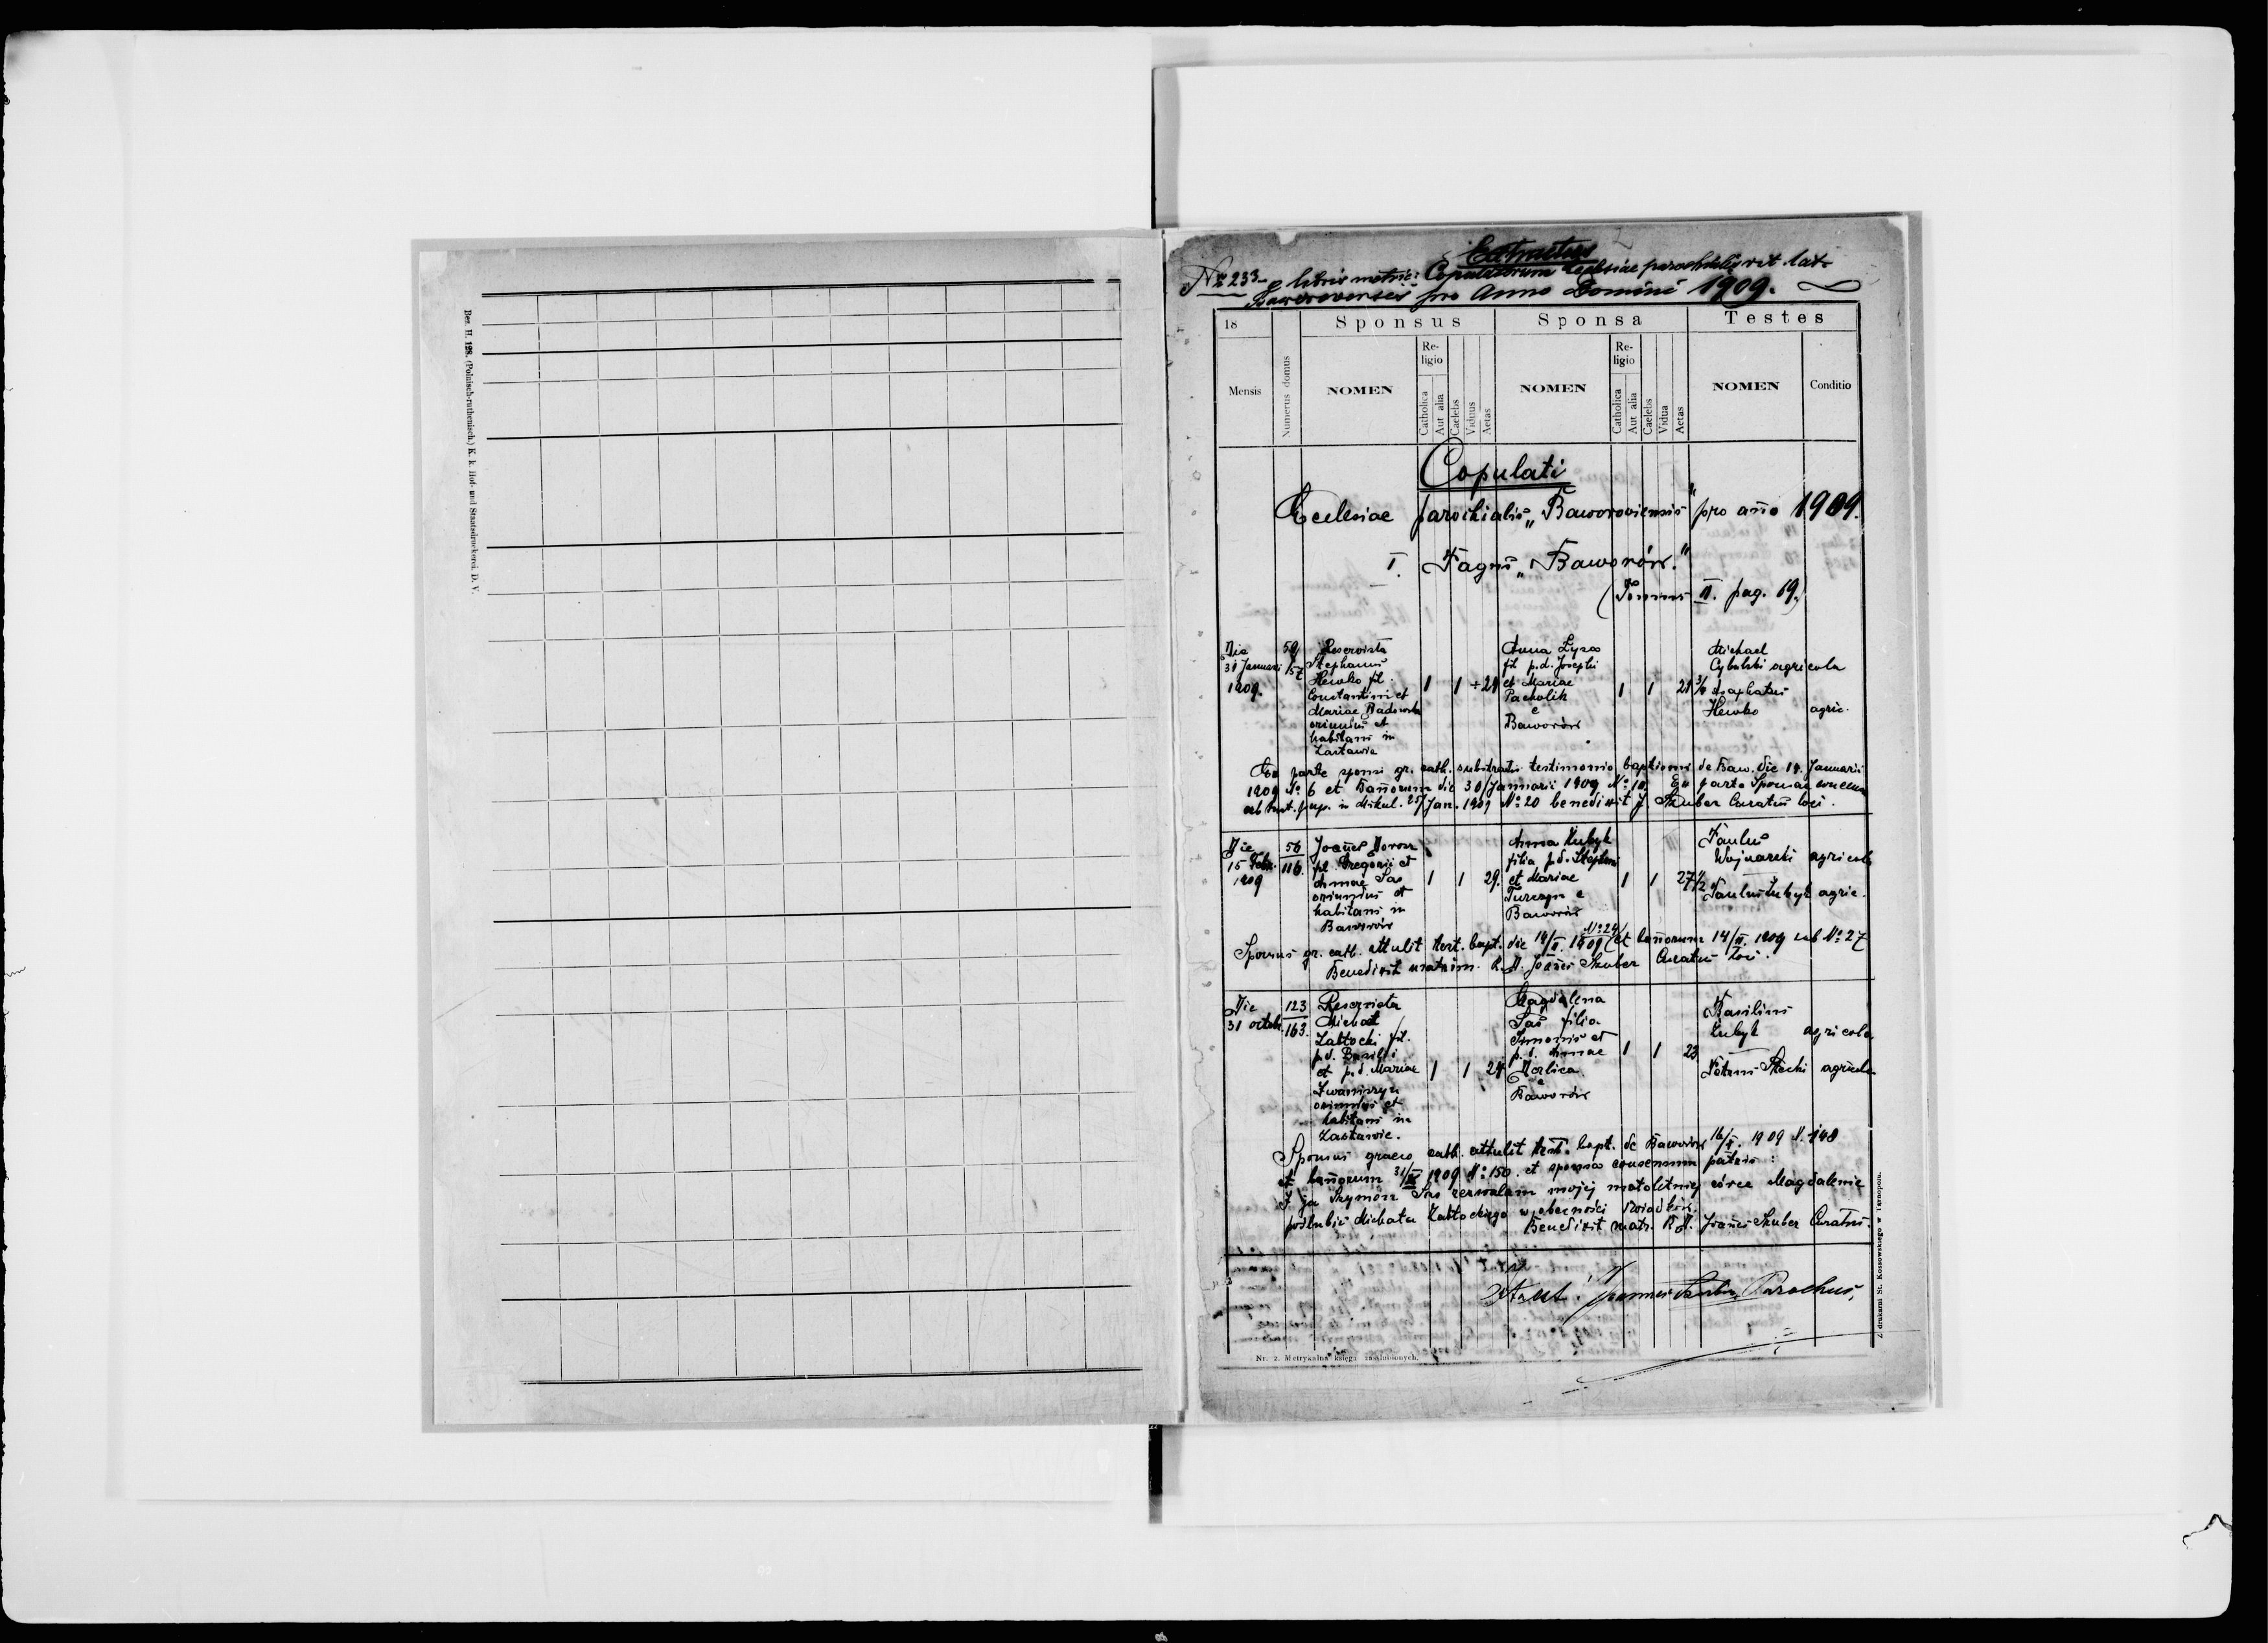 Bez. H. 128. (Polnisch-ruthenisch.) K. k. Hof- und Staatsdruckerei. D. V.
Extractus
№ 233 e libris metric: Copulatorum Ecclesiae parochialis rit. lat.
pro Anno Domini 1909.
18
Sponsus
Sponsa
Testes
Mensis
Numerus domus
NOMEN
Religio
Catholica
Aut alia
Caelebs
Viduus
Aetas
NOMEN
Religio
Catholica
Aut alia
Caelebs
Vidua
Aetas
NOMEN
Conditio
Copulati
Ecclesiae parochialis „Baworoviensis" pro año 1909.
I. Pagus „Baworów."
(Tomus II. pag. 19.)
Die
31 Januari
1909.
59
157
Reservista
Stephanus
Hewko fil.
Constantini et
Mariae Badowska
oriundus et
habitans in
Zastawie
1
1
+ 21
Anna Łysa
fil p.d. Josephi
et Mariae
Pacholik
e
Baworów
1
1
21 3/4
Michael
Cybulski agricola
Josaphatus
Hewko agric.
Ex parte sponsi gr. cath. substratis testimonio baptismi de Baw. die 19. Januarii
1909 № 6 et Bañorum die 30/Januarii 1909 № 10. Ex parte Sponsae
in Mikul. 25/Jan. 1909 № 20 benedixit J. Skuber Curatus loci.
Die
15 Febr.
1909
56
116.
Joañes Moroz
fil. Gregorii et
Annae Sas
oriundus et
habitans in
Baworów
1
1
29.
Anna Kubyk
filia p.d. Stephani
et Mariae
Turczyn e
Baworów
1
1
27 1/2
Paulus
Wojnarski agricola
Paulus Kubyk agric.
№ 24
Sponsus gr. cath. attulit test. bapt. die 14/II. 1909 (et bañorum 14/II. 1909 sub № 27
Benedixit matrim. R.D. Joañes Skuber Curatus loci.
Die
31 octob.
123
163.
Reservista
Michael
Zabłocki fil.
p.d. Basilii
et p.d. Mariae
Iwaniszyn
oriundus et
habitans in
Zastawie.
1
1
24
Magdalena
Sas filia
Simonis et
p.d. Annae
e
Baworów
1
1
23
Basilius
Kubyk agricola
Petrus Stecki agricola
Sponsus graeco cath. attulit test. bapt. de Baworów 16/X. 1909 N. 148
et bañorum 31/X 1909 №: 150. et sponsa consensum patris:
I ja Szymon Sas zezwalam mojej małoletniej córce Magdalenie
poślubić Michała Zabłockiego w obecności świadków.
Benedixit matr. R.D. Joañes Skuber Curatus.
Joannes Skuber, Parochus,
Nr. 2. Metrykalna księga zaślubionych.
Z drukarni St. Kossowskiego w Tarnopolu.